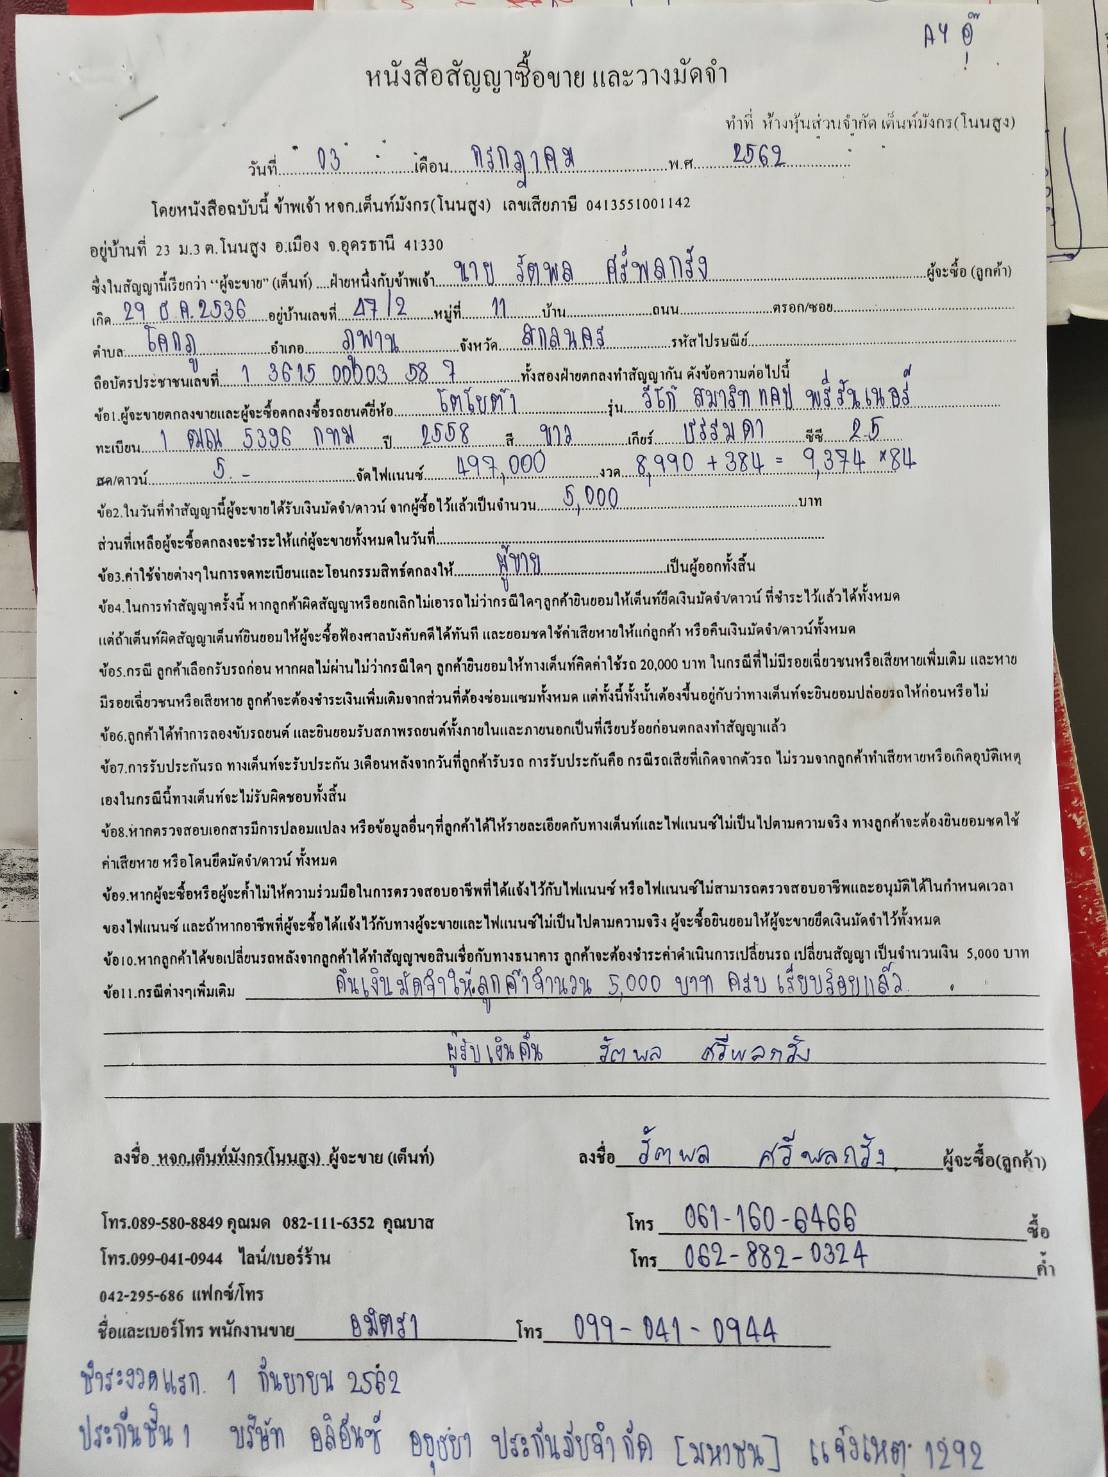 AY อุ๊
หนังสือสัญญาซื้อขาย และวางมัดจำ
ทำที่ ห้างหุ้นส่วนจำกัด เต็นท์มังกร(โนนสูง)
วันที่ 03 เดือน กรกฎาคม พ.ศ. 2562
โดยหนังสือฉบับนี้ ข้าพเจ้า หจก.เต็นท์มังกร(โนนสูง) เลขเสียภาษี 0413551001142
อยู่บ้านที่ 23 ม.3 ต.โนนสูง อ.เมือง จ.อุดรธานี 41330
ซึ่งในสัญญานี้เรียกว่า "ผู้จะขาย" (เต็นท์) ....ฝ่ายหนึ่งกับข้าพเจ้า นาย รัตพล ศรีพลกรัง ผู้จะซื้อ (ลูกค้า)
เกิด 29 ธ.ค.2536 อยู่บ้านเลขที่ 47/2 หมู่ที่ 11 บ้าน ถนน ตรอก/ซอย
ตำบล โคกภู อำเภอ ภูพาน จังหวัด สกลนคร รหัสไปรษณีย์
ถือบัตรประชาชนเลขที่ 1 3615 00003 58 7 ทั้งสองฝ่ายตกลงทำสัญญากัน ดังข้อความต่อไปนี้
ข้อ1.ผู้จะขายตกลงขายและผู้จะซื้อตกลงซื้อรถยนต์ยี่ห้อ โตโยต้า รุ่น วีโก้ สมาร์ท แคป พรีรันเนอร์
ทะเบียน 1 ฒณ 5396 กทม ปี 2558 สี ขาว เกียร์ ธรรมดา ซีซี 2.5
สด/ดาวน์ 5.- จัดไฟแนนซ์ 497,000 งวด 8,990 + 384 = 9,374 *84
ข้อ2.ในวันที่ทำสัญญานี้ผู้จะขายได้รับเงินมัดจำ/ดาวน์ จากผู้ซื้อไว้แล้วเป็นจำนวน 5,000 บาท
ส่วนที่เหลือผู้จะซื้อตกลงจะชำระให้แก่ผู้จะขายทั้งหมดในวันที่
ข้อ3.ค่าใช้จ่ายต่างๆในการจดทะเบียนและโอนกรรมสิทธ์ตกลงให้ ผู้ขาย เป็นผู้ออกทั้งสิ้น
ข้อ4.ในการทำสัญญาครั้งนี้ หากลูกค้าผิดสัญญาหรือยกเลิกไม่เอารถไม่ว่ากรณีใดๆลูกค้ายินยอมให้เต็นท์ยึดเงินมัดจำ/ดาวน์ ที่ชำระไว้แล้วได้ทั้งหมด
แต่ถ้าเต็นท์ผิดสัญญาเต็นท์ยินยอมให้ผู้จะซื้อฟ้องศาลบังคับคดีได้ทันที และยอมชดใช้ค่าเสียหายให้แก่ลูกค้า หรือคืนเงินมัดจำ/ดาวน์ทั้งหมด
ข้อ5.กรณี ลูกค้าเลือกรับรถก่อน หากผลไม่ผ่านไม่ว่ากรณีใดๆ ลูกค้ายินยอมให้ทางเต็นท์คิดค่าใช้รถ 20,000 บาท ในกรณีที่ไม่มีรอยเฉี่ยวชนหรือเสียหายเพิ่มเติม และหาย
มีรอยเฉี่ยวชนหรือเสียหาย ลูกค้าจะต้องชำระเงินเพิ่มเติมจากส่วนที่ต้องซ่อมแซมทั้งหมด แต่ทั้งนี้ทั้งนั้นต้องขึ้นอยู่กับว่าทางเต็นท์จะยินยอมปล่อยรถให้ก่อนหรือไม่
ข้อ6.ลูกค้าได้ทำการลองขับรถยนต์ และยินยอมรับสภาพรถยนต์ทั้งภายในและภายนอกเป็นที่เรียบร้อยก่อนตกลงทำสัญญาแล้ว
ข้อ7.การรับประกันรถ ทางเต็นท์จะรับประกัน 3เดือนหลังจากวันที่ลูกค้ารับรถ การรับประกันคือ กรณีรถเสียที่เกิดจากตัวรถ ไม่รวมจากลูกค้าทำเสียหายหรือเกิดอุบัติเหตุ
เองในกรณีนี้ทางเต็นท์จะไม่รับผิดชอบทั้งสิ้น
ข้อ8.หากตรวจสอบเอกสารมีการปลอมแปลง หรือข้อมูลอื่นๆที่ลูกค้าได้ให้รายละเอียดกับทางเต็นท์และไฟแนนซ์ไม่เป็นไปตามความจริง ทางลูกค้าจะต้องยินยอมชดใช้
ค่าเสียหาย หรือโดนยึดมัดจำ/ดาวน์ ทั้งหมด
ข้อ9.หากผู้จะซื้อหรือผู้จะค้ำไม่ให้ความร่วมมือในการตรวจสอบอาชีพที่ได้แจ้งไว้กับไฟแนนซ์ หรือไฟแนนซ์ไม่สามารถตรวจสอบอาชีพและอนุมัติได้ในกำหนดเวลา
ของไฟแนนซ์ และถ้าหากอาชีพที่ผู้จะซื้อได้แจ้งไว้กับทางผู้จะขายและไฟแนนซ์ไม่เป็นไปตามความจริง ผู้จะซื้อยินยอมให้ผู้จะขายยึดเงินมัดจำไว้ทั้งหมด
ข้อ10.หากลูกค้าได้ขอเปลี่ยนรถหลังจากลูกค้าได้ทำสัญญาขอสินเชื่อกับทางธนาคาร ลูกค้าจะต้องชำระค่าดำเนินการเปลี่ยนรถ เปลี่ยนสัญญา เป็นจำนวนเงิน 5,000 บาท
ข้อ11.กรณีต่างๆเพิ่มเติม คืนเงินมัดจำให้ลูกค้าจำนวน 5,000 บาท ครบ เรียบร้อยแล้ว
ผู้รับเงินคืน รัตพล ศรีพลกรัง
ลงชื่อ หจก.เต็นท์มังกร(โนนสูง) ผู้จะขาย (เต็นท์) ลงชื่อ รัตพล ศรีพลกรัง ผู้จะซื้อ(ลูกค้า)
โทร.089-580-8849 คุณมด 082-111-6352 คุณบาส โทร 061-160-6466 ซื้อ
โทร.099-041-0944 ไลน์/เบอร์ร้าน โทร. 062-882-0324 ค้ำ
042-295-686 แฟกซ์/โทร
ชื่อและเบอร์โทร พนักงานขาย อมิตรา โทร 099-041-0944
ชำระงวดแรก. 1 กันยายน 2562
ประกันชั้น 1 บริษัท อลิอันซ์ อยุธยา ประกันภัยจำกัด [มหาชน] แจ้งเหตุ 1292